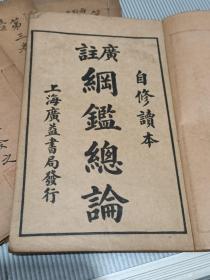 自修讀本
廣註
綱鑑總論
上海廣益書局發行
第三